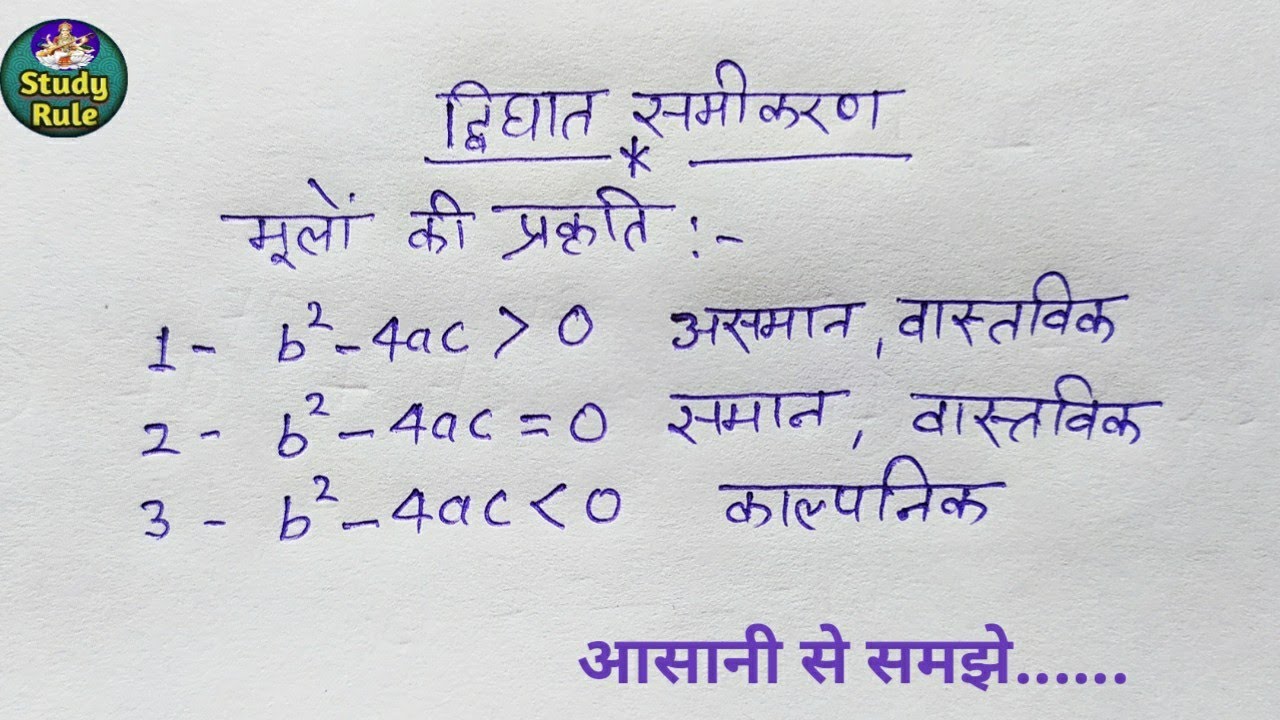 Study
Rule
द्विघात समीकरण
*
मूलों की प्रकृति :-
1 - b² - 4ac > 0 असमान, वास्तविक
2 - b² - 4ac = 0 समान, वास्तविक
3 - b² - 4ac < 0 काल्पनिक
आसानी से समझे......